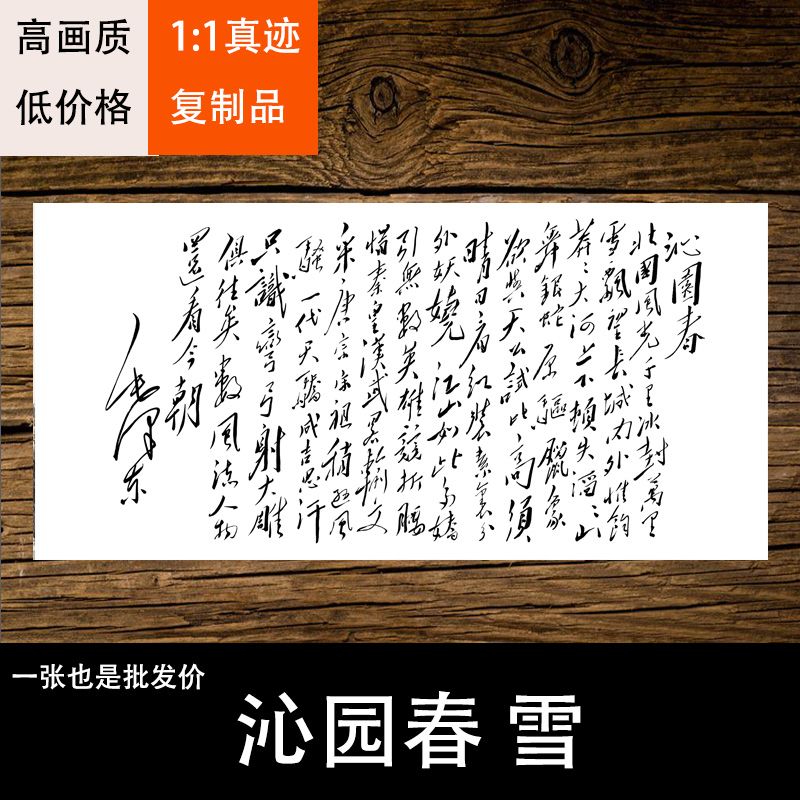 高画质
低价格
1:1真迹
复制品
沁園春
北國風光千里冰封萬里
雪飄望長城内外惟餘
莽〻大河上下頓失滔〻山
舞銀蛇原驅臘象
欲與天公試比高須
晴日看红裝素裹分
外妖嬈江山如此多嬌
引無數英雄競折腰
惜秦皇漢武畧輸文
采唐宗宋祖稍遜風
騷一代天驕成吉思汗
只識彎弓射大雕
俱往矣數風流人物
還看今朝
毛泽东
一张也是批发价
沁园春 雪